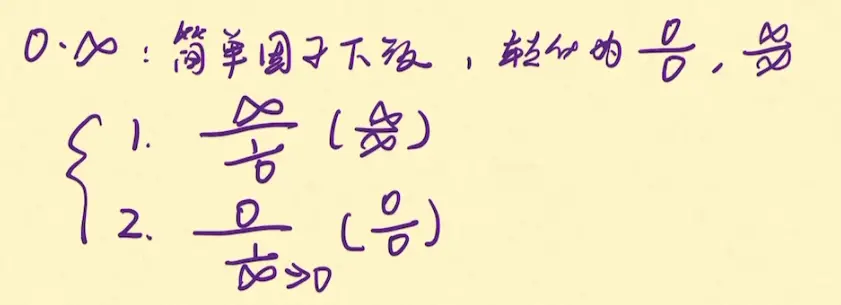 0·∞：简单因子下放，转化为 0/0，∞/∞
1. ∞/(1/0) (∞/∞)
2. 0/(1/∞)→0 (0/0)